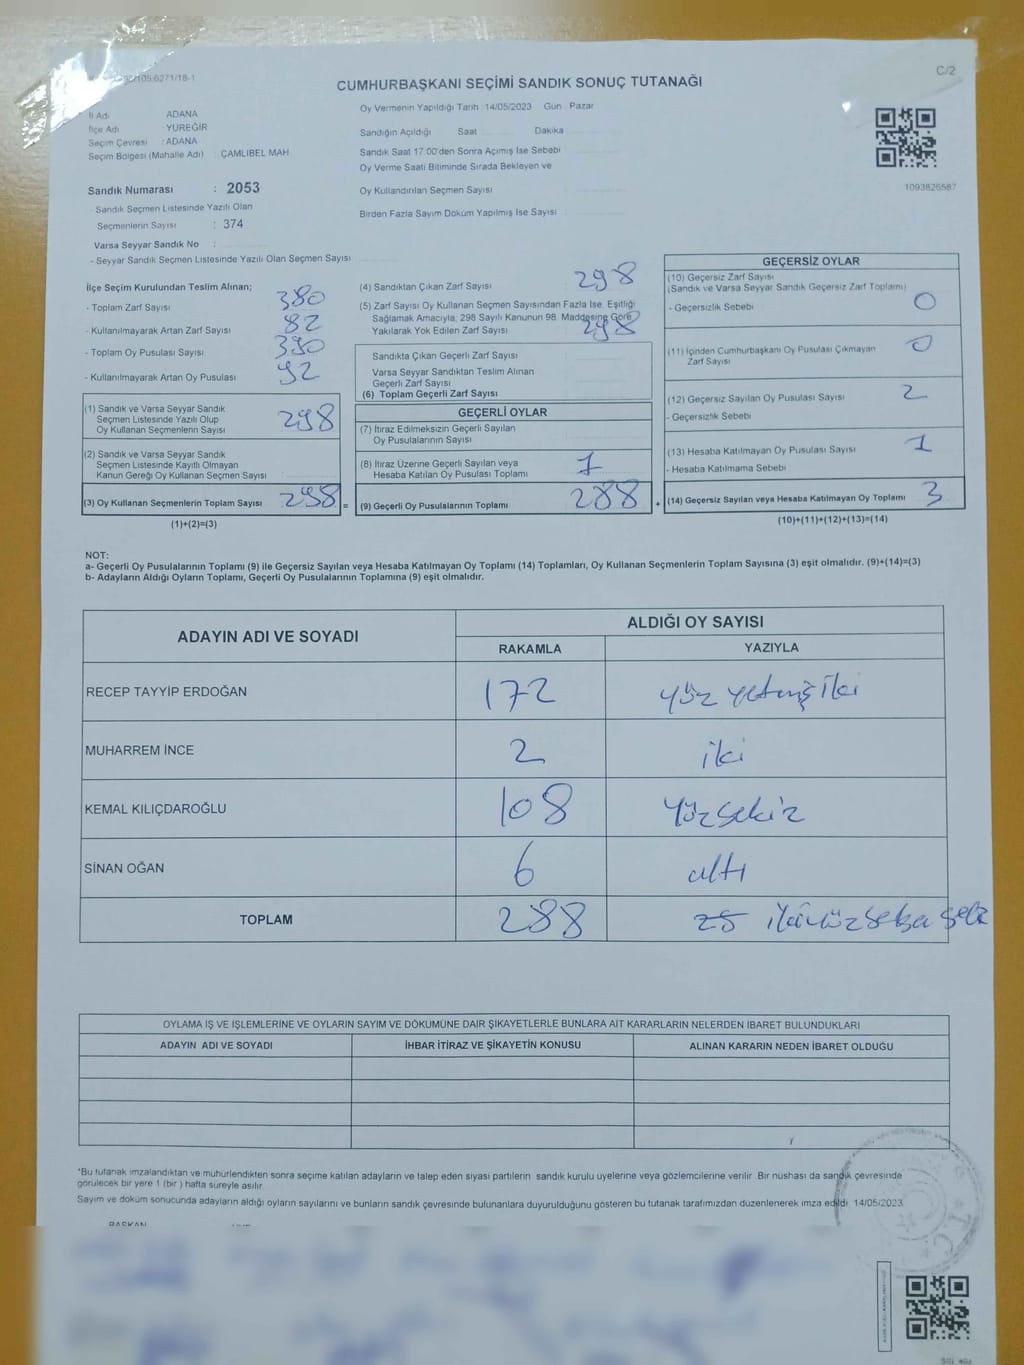 105 6271/18-1
C/2
CUMHURBAŞKANI SEÇİMİ SANDIK SONUÇ TUTANAĞI
İl Adı ADANA
İlçe Adı YÜREĞİR
Seçim Çevresi : ADANA
Seçim Bölgesi (Mahalle Adı) : ÇAMLIBEL MAH
Sandık Numarası : 2053
- Sandık Seçmen Listesinde Yazılı Olan
Seçmenlerin Sayısı : 374
Varsa Seyyar Sandık No :
- Seyyar Sandık Seçmen Listesinde Yazılı Olan Seçmen Sayısı
Oy Vermenin Yapıldığı Tarih : 14/05/2023 Gün : Pazar
Sandığın Açıldığı Saat Dakika
Sandık Saat 17:00'den Sonra Açımış İse Sebebi
Oy Verme Saati Bitiminde Sırada Bekleyen ve
Oy Kullandırılan Seçmen Sayısı
Birden Fazla Sayım Döküm Yapılmış İse Sayısı
1093826587
İlçe Seçim Kurulundan Teslim Alınan;
- Toplam Zarf Sayısı 380
- Kullanılmayarak Artan Zarf Sayısı 82
- Toplam Oy Pusulası Sayısı 390
- Kullanılmayarak Artan Oy Pusulası 92
(1) Sandık ve Varsa Seyyar Sandık
Seçmen Listesinde Yazılı Olup
Oy Kullanan Seçmenlerin Sayısı 298
(2) Sandık ve Varsa Seyyar Sandık
Seçmen Listesinde Kayıtlı Olmayan
Kanun Gereği Oy Kullanan Seçmen Sayısı
(3) Oy Kullanan Seçmenlerin Toplam Sayısı 298 =
(1)+(2)=(3)
(4) Sandıktan Çıkan Zarf Sayısı 298
(5) Zarf Sayısı Oy Kullanan Seçmen Sayısından Fazla İse, Eşitliği
Sağlamak Amacıyla, 298 Sayılı Kanunun 98. Maddesine Göre
Yakılarak Yok Edilen Zarf Sayısı 298
Sandıkta Çıkan Geçerli Zarf Sayısı
Varsa Seyyar Sandıktan Teslim Alınan
Geçerli Zarf Sayısı
(6) Toplam Geçerli Zarf Sayısı
GEÇERLİ OYLAR
(7) İtiraz Edilmeksizin Geçerli Sayılan
Oy Pusulalarının Sayısı
(8) İtiraz Üzerine Geçerli Sayılan veya
Hesaba Katılan Oy Pusulası Toplamı 1
(9) Geçerli Oy Pusulalarının Toplamı 288 +
GEÇERSİZ OYLAR
(10) Geçersiz Zarf Sayısı
(Sandık ve Varsa Seyyar Sandık Geçersiz Zarf Toplamı)
- Geçersizlik Sebebi 0
(11) İçinden Cumhurbaşkanı Oy Pusulası Çıkmayan
Zarf Sayısı 0
(12) Geçersiz Sayılan Oy Pusulası Sayısı 2
- Geçersizlik Sebebi
(13) Hesaba Katılmayan Oy Pusulası Sayısı 1
- Hesaba Katılmama Sebebi
(14) Geçersiz Sayılan veya Hesaba Katılmayan Oy Toplamı 3
(10)+(11)+(12)+(13)=(14)
NOT:
a- Geçerli Oy Pusulalarının Toplamı (9) ile Geçersiz Sayılan veya Hesaba Katılmayan Oy Toplamı (14) Toplamları, Oy Kullanan Seçmenlerin Toplam Sayısına (3) eşit olmalıdır. (9)+(14)=(3)
b- Adayların Aldığı Oyların Toplamı, Geçerli Oy Pusulalarının Toplamına (9) eşit olmalıdır.
ADAYIN ADI VE SOYADI ALDIĞI OY SAYISI
RAKAMLA YAZIYLA
RECEP TAYYİP ERDOĞAN 172 yüz yetmiş iki
MUHARREM İNCE 2 iki
KEMAL KILIÇDAROĞLU 108 Yüzsekiz
SİNAN OĞAN 6 altı
TOPLAM 288
OYLAMA İŞ VE İŞLEMLERİNE VE OYLARIN SAYIM VE DÖKÜMÜNE DAİR ŞİKAYETLERLE BUNLARA AİT KARARLARIN NELERDEN İBARET BULUNDUKLARI
ADAYIN ADI VE SOYADI İHBAR İTİRAZ VE ŞİKAYETİN KONUSU ALINAN KARARIN NEDEN İBARET OLDUĞU
*Bu tutanak imzalandıktan ve mühürlendikten sonra seçime katılan adayların ve talep eden siyasi partilerin sandık kurulu üyelerine veya gözlemcilerine verilir. Bir nüshası da sandık çevresinde
görülecek bir yere 1 (bir) hafta süreyle asılır.
Sayım ve döküm sonucunda adayların aldığı oyların sayılarını ve bunların sandık çevresinde bulunanlara duyurulduğunu gösteren bu tutanak tarafımızdan düzenlenerek imza edildi. 14/05/2023
BAŞKAN